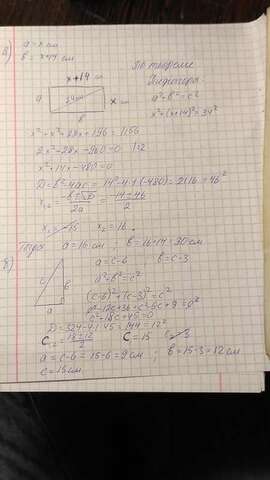 а) a = x см
b = x+14 см
x+14 см
По теореме
Пифагора
a x см
b
a²+b²=c²
x²+(x+14)²=34²
x²+x²+28x+196=1156
2x²+28x-960=0 |:2
x²+14x-480=0
D=b²-4ac=14²-4·1·(-480)=2116=46²
x₁,₂ = (-b±√D)/2a = (-14±46)/2
x₂=16
Тогда a=16см; b=16+14=30см
б) a=c-6 b=c-3
c b
a
a²+b²=c²
(c-6)²+(c-3)²=c²
c²-12c+36+c²-6c+9=c²
c²-18c+45=0
D=324-4·1·45=144=12²
c₁,₂ = (18±12)/2 c=15 c=3
a=c-6=15-6=9см; b=15-3=12см
c=15см